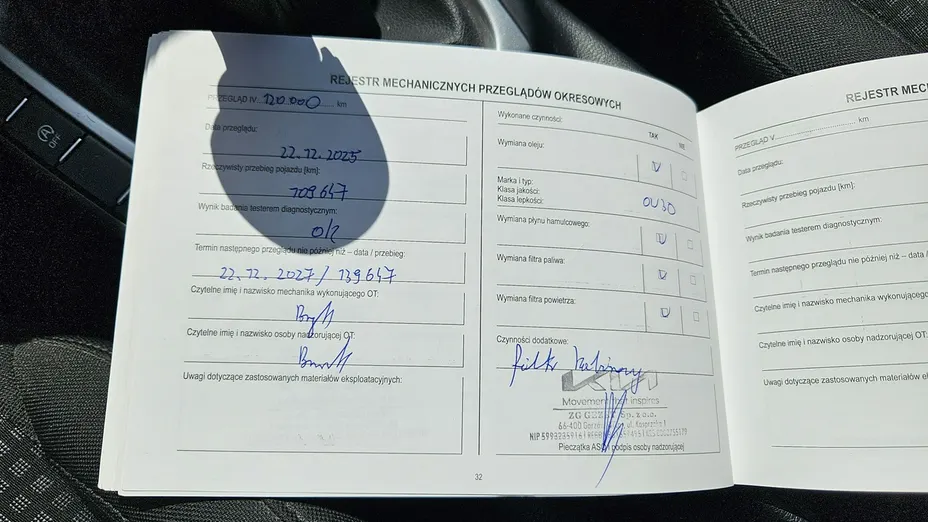 REJESTR MECHANICZNYCH PRZEGLĄDÓW OKRESOWYCH
PRZEGLĄD IV 120.000 km
Data przeglądu:
22.12.2025
Rzeczywisty przebieg pojazdu [km]:
109647
Wynik badania testerem diagnostycznym:
ok
Termin następnego przeglądu nie później niż – data / przebieg:
22.12.2027 / 139647
Czytelne imię i nazwisko mechanika wykonującego OT:
Czytelne imię i nazwisko osoby nadzorującej OT:
Uwagi dotyczące zastosowanych materiałów eksploatacyjnych:
Wykonane czynności:
TAK NIE
Wymiana oleju:
V
Marka i typ:
Klasa jakości:
Klasa lepkości:
0W30
Wymiana płynu hamulcowego:
V
Wymiana filtra paliwa:
V
Wymiana filtra powietrza:
V
Czynności dodatkowe:
filtr kabinowy
KIA
Movement that inspires
ZG Sp. z o.o.
66-400 Gorzów
NIP
Pieczątka ASO i podpis osoby nadzorującej
32
REJESTR MEC
PRZEGLĄD V km
Data przeglądu:
Rzeczywisty przebieg pojazdu [km]:
Wynik badania testerem diagnostycznym:
Termin następnego przeglądu nie później niż – data /
Czytelne imię i nazwisko mechanika wykonującego
Czytelne imię i nazwisko osoby nadzorującej OT:
Uwagi dotyczące zastosowanych materiałów
OFF